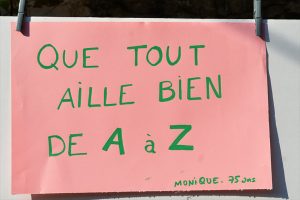 QUE TOUT
AILLE BIEN
DE A à Z
MONIQUE. 75 ans